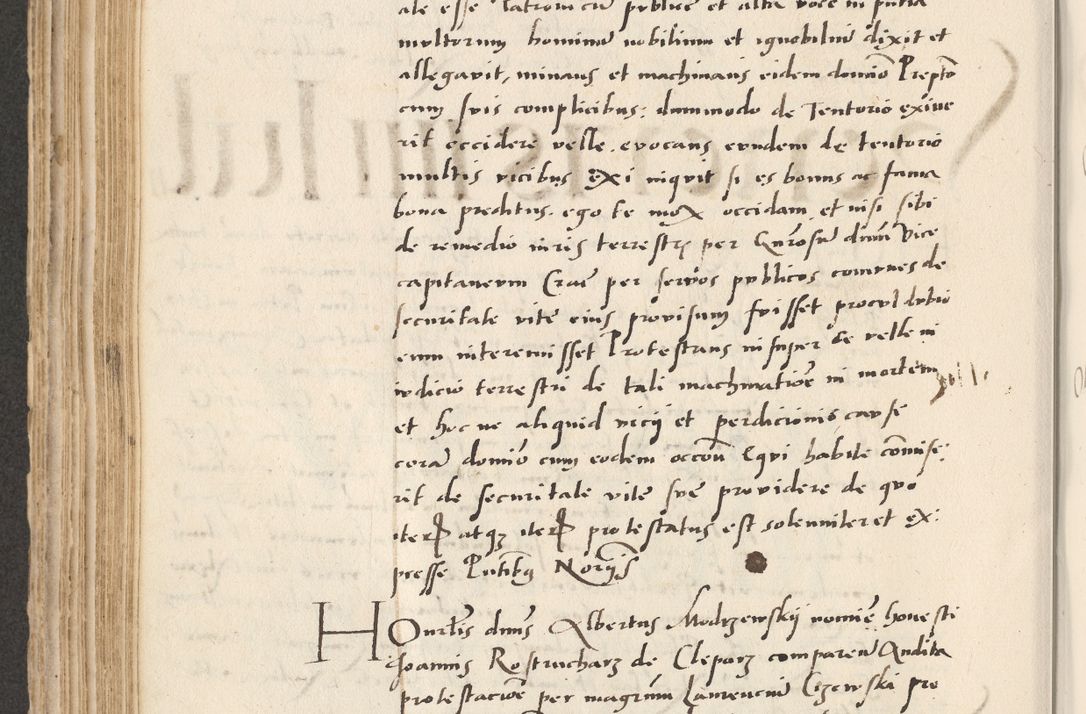 ale esse latrom cu publice et alta voce in putia
multorum hominu nobilium et ignobiliu dixit et
allegavit, minans et machinans eidem domio Prepto
cum suis complicibus: dummodo de Tentorio exive
rit occidere velle. evocans eundem de tentorio
multis vicibus Exi inquit si es bonus ac fama
bona preditus. ego te mox occidam et nisi sibi
de remedio iuris terrestris per Gnrosu dnm Vice
capitaneum Crac per servos publicos comunes de
securitate vite eius provisum fuisset procul dubio
eum interemisset Protestans insuper se velle in
iudicio terrestri de tali machinatioe in mortem
et hoc ne aliquid vicij et perdicionis cause
cora domio cum eodem occou Equi habite comise:
rit de securitate vite sue providere de quo
iterP atqz iterP protestatus est solenniter et ex:
presse Putibq Noriis
HOnrlis dnus Albertus Modrzewskij nomie honesti
Joannis Rostrucharz de Cleparz comparen Audita
protestacioe per magrum Laurenciu Czewski pre